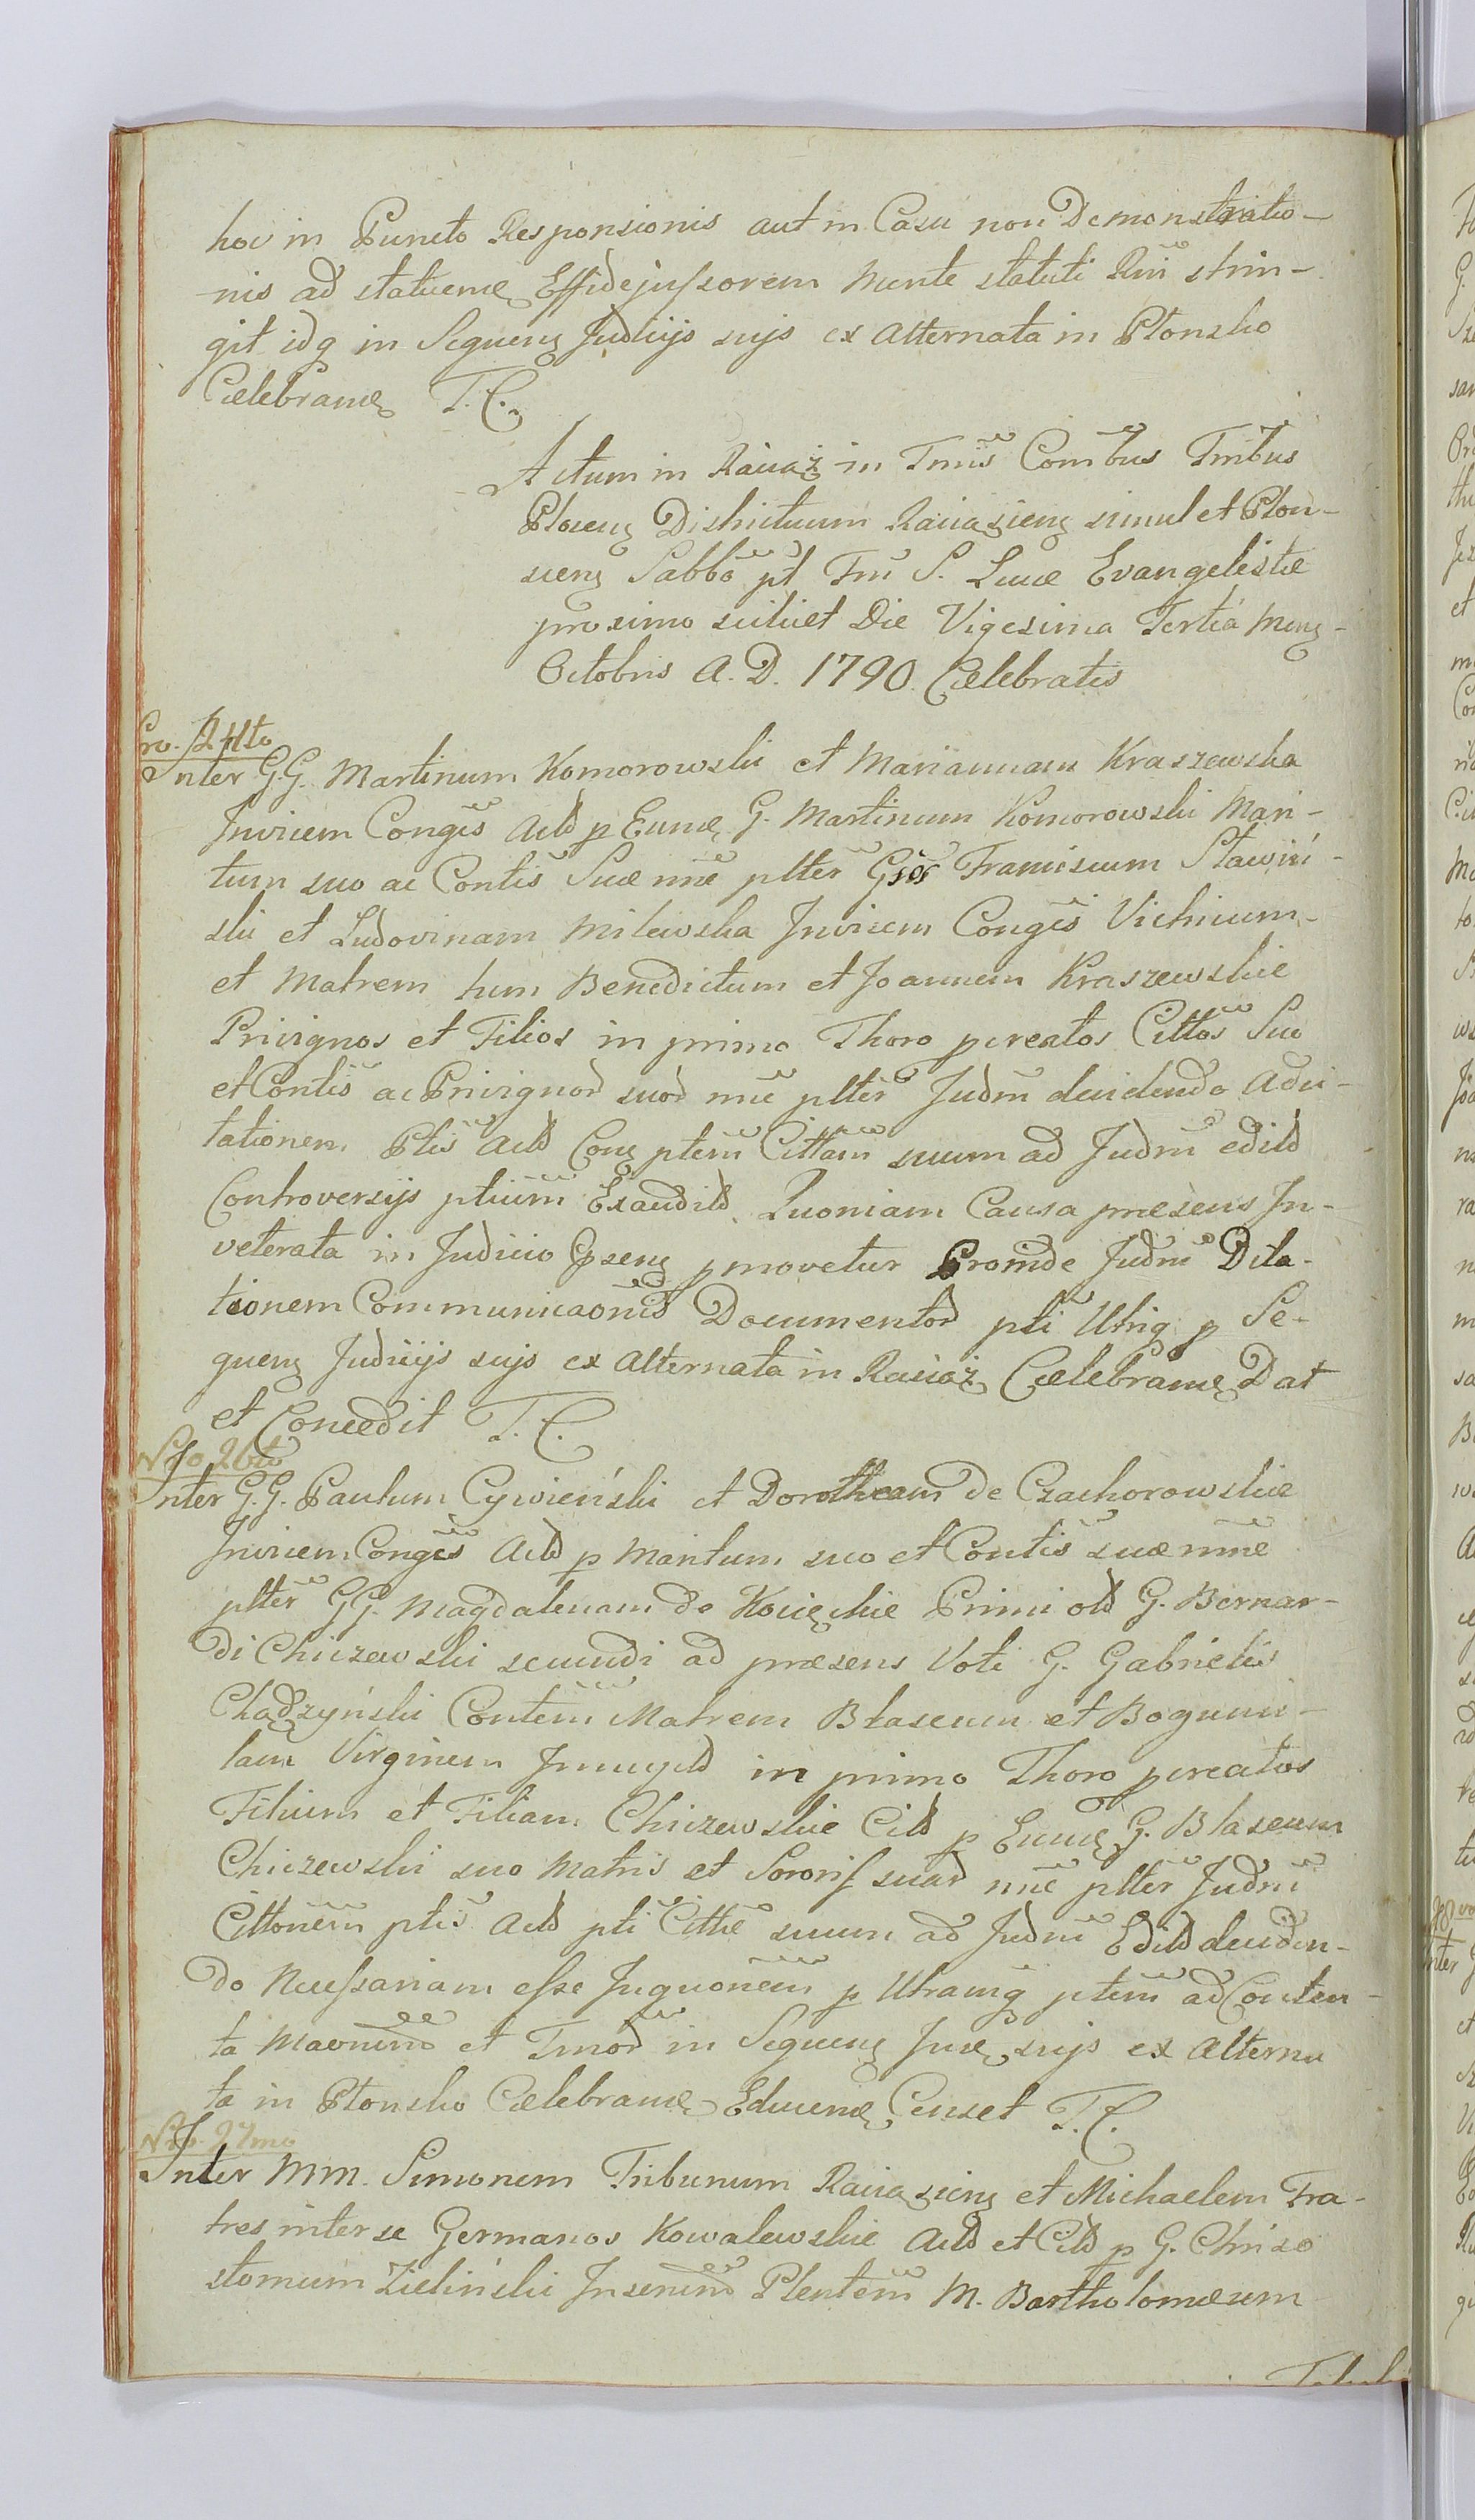 hoc in Puncto Responsionis aut in Casu non Demonstratio-
nis ad statuene Effidejussorem mente statuti Rni strin-
git idq in Sequens Judiiys suis ex alternata in Płonsko
Celebrane T. C.
Actum in Raciąż in Tmis Combus Tmbus
Plocens Districtuum Raciąziens simul et Płon-
siens Sabbo pt Tm S. Lucæ Evangelistæ
proximo scilicet Die Vigesima Tertia Mens
Octobris A. D. 1790. Celebratis
Nro. 24to
Inter G.G. Martinum Komorowski et Mariannam Kraszewska
Invicem Conges Actd p Eume G. Martinum Komorowski Mari-
tum suo ac Contis Suæ nne plter Gsos Franciscum Sławiń-
ski et Ludovinam Milewska Invicem Conges Vitricum
et Matrem tum Benedictum et Joannem Kraszewskie
Privignos et Filios in primo Thoro pcreatos Cittos Suo
et Contis ac Privignod suod nne plter Judm decidendo adci-
tationem Ptis Actd Cons ptem Cittam suum ad Judm edild
Controversys ptium Exaudild Quoniam Causa præsens In-
veterata in Judicio Ipsens pmovetur Proinde Judm Dila-
tionem Communicaonis Documentod pti Utriq p Se-
quens Judiiys suis ex alternata in Raciąż Celebrame Dat
et Concedit T. C.
Nro 26to
Inter G.G. Paulum Cywieński et Dorotheam de Czachorowskie
Invicem Conges Actd p Maritum suo et Contis suæ nne
plter GG. Magdalenam de Kocięckie Primi old G. Bernar-
di Chiczewski secundi ad præsens Voti G. Gabrielis
Chądzyński Contem Matrem Błaseum et Bogumi-
lam Virginem Innuptd in primo Thoro pcreatos
Filium et Filiam Chiczewskie Citd p Eume G. Blaseum
Chiczewski suo Matris et Sororis suad nne plter Judm
Cittonem ptis Actd pti Cittæ suum ad Judm Edild deciden-
do Necessariam esse Inquonem p Utramq ptem ad Conten-
ta et Tmod in Sequens Jure suis ex Alterna
ta in Płonsko Celebrame Educene Censet T. C.
Nro. 27mo
Inter MM. Simonem Tribunum Raciąziens et Michaelem Fra-
tres inter se Germanos Kowalewskie Actd et Citd p G. Chriso
stomum Zieliński Plentem M. Bartholomæum